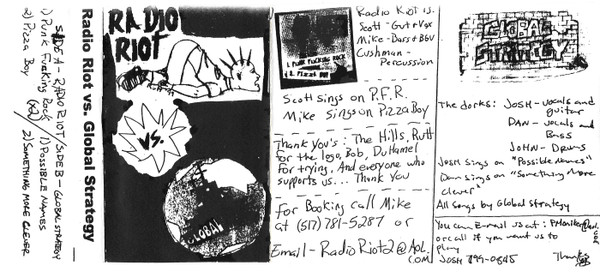 SIDE A - RADIO RIOT / SIDE B - GLOBAL STRATEGY
1) Punk Fucking Rock / 1) POSSIBLE NAMES
(x2)
2) Pizza Boy / 2) SOMETHING MORE CLEVER
Radio Riot vs. Global Strategy
RADIO
RIOT
VS.
GLOBAL
1. PUNK FUCKING ROCK
2. PIZZA BOY
Radio Riot is:
Scott - Gut + Vox
Mike - Bass + BGV
Cushman -
Percussion
Scott sings on P.F.R.
Mike Sings on Pizza Boy
Thank you's: The Hills, Rutt
for the logo, Bob, DuHamel
For trying, And everyone who
supports us... Thank you
For Booking call Mike
at (517)781-5287 or
Email - RadioRiot2@AOL
.COM
GLOBAL
STRATEGY
The dorks: JOSH - vocals and
guitar
DAN - vocals and
Bass
JOHN - Drums
JOSH sings on "Possible Names"
Dan sings on "Something More
Clever"
All songs by Global Strategy
You can E-mail us at:
or call if you want us to
play
JOSH 799-0845
Thanks